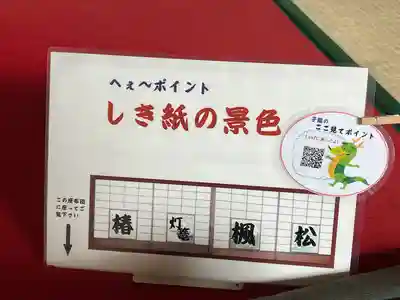 へぇ〜ポイント
しき紙の景色
子龍の
ここ見てポイント
この座布団
に座ってご
覧下さい
椿
灯篭
楓
松